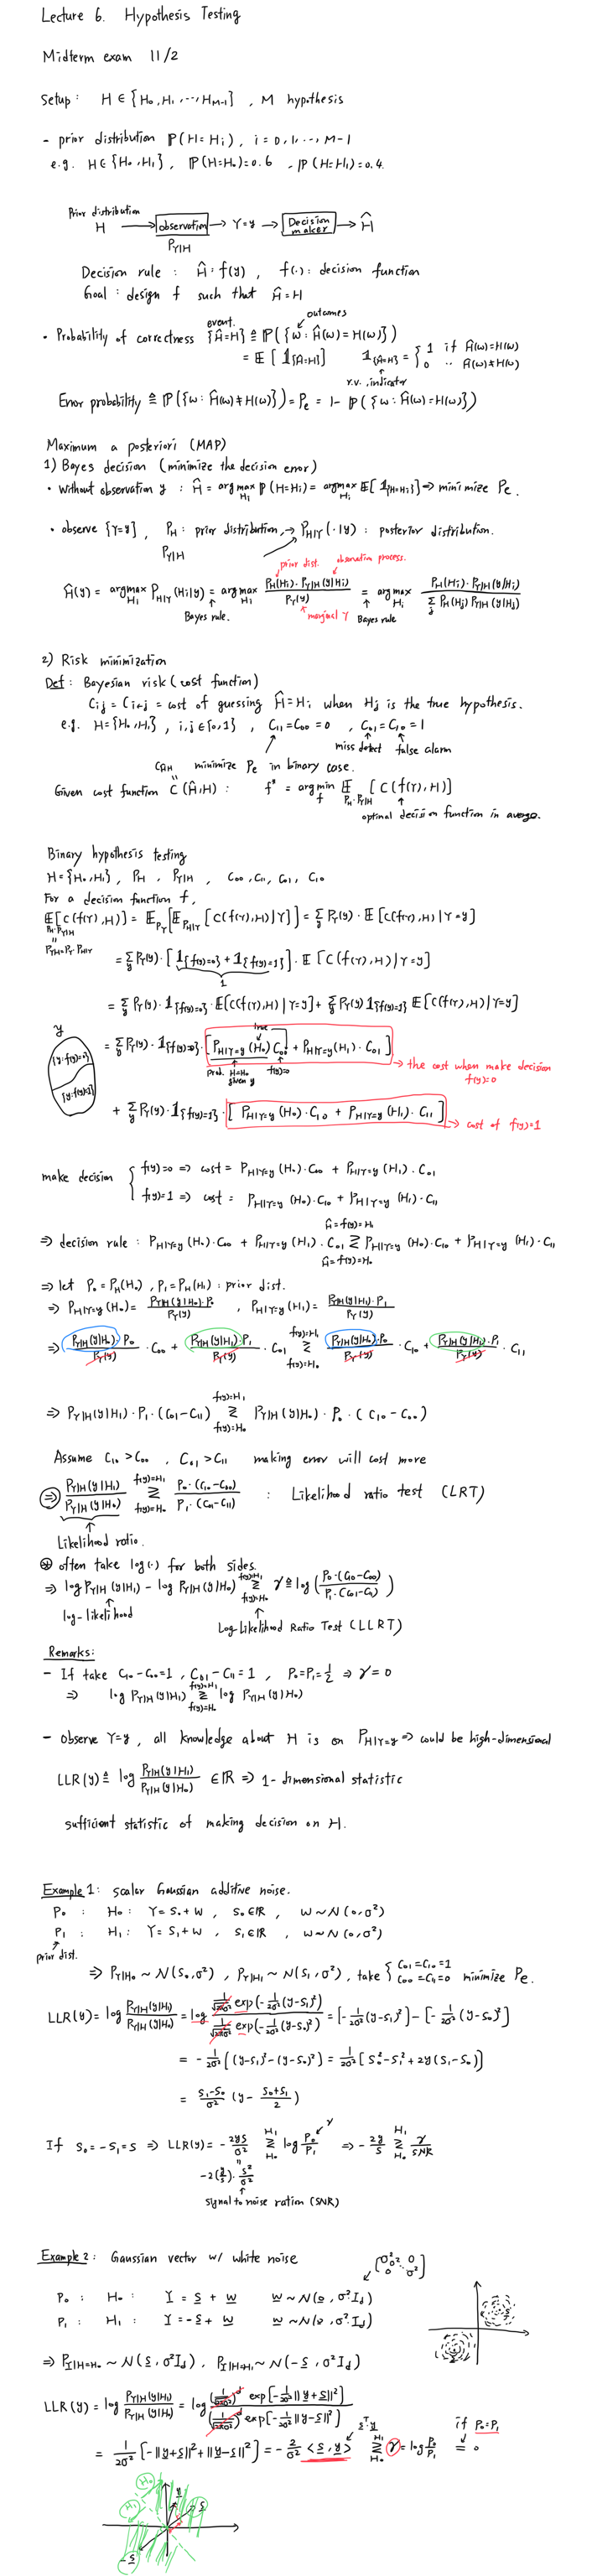 Lecture 6. Hypothesis Testing
Midterm exam 11/2
Setup : H ∈ {H₀, H₁, ..., H_{M-1}} , M hypothesis
- prior distribution ℙ(H=Hᵢ) , i = 0, 1, ..., M-1
e.g. H∈{H₀,H₁} , ℙ(H=H₀)=0.6 , ℙ(H=H₁)=0.4.
Prior distribution
H → observation → Y=y → Decision maker → Ĥ
P_{Y|H}
Decision rule : Ĥ = f(y) , f(·) : decision function
Goal : design f such that Ĥ = H
event. outcomes
• Probability of correctness {Ĥ=H} ≜ ℙ({ω : Ĥ(ω) = H(ω)})
= 𝔼[𝟙_{Ĥ=H}] 𝟙_{Ĥ=H} = { 1 if Ĥ(ω)=H(ω)
0 .. Ĥ(ω)≠H(ω)
r.v. , indicator
Error probability ≜ ℙ({ω : Ĥ(ω)≠H(ω)}) = Pe = 1 - ℙ({ω : Ĥ(ω)=H(ω)})
Maximum a posteriori (MAP)
1) Bayes decision (minimize the decision error)
• Without observation y : Ĥ = argmax_{Hᵢ} ℙ(H=Hᵢ) = argmax_{Hᵢ} 𝔼[𝟙_{H=Hᵢ}] → minimize Pe.
• observe {Y=y} , P_H : prior distribution, → P_{H|Y}(·|y) : posterior distribution.
P_{Y|H}
prior dist. observation process.
Ĥ(y) = argmax_{Hᵢ} P_{H|Y}(Hᵢ|y) = argmax_{Hᵢ} P_H(Hᵢ)·P_{Y|H}(y|Hᵢ) / P_Y(y) = argmax_{Hᵢ} P_H(Hᵢ)·P_{Y|H}(y|Hᵢ) / Σ_j P_H(H_j) P_{Y|H}(y|H_j)
Bayes rule. marginal Y Bayes rule
2) Risk minimization
Def : Bayesian risk (cost function)
C_{ij} = C_{i←j} = cost of guessing Ĥ=Hᵢ when H_j is the true hypothesis.
e.g. H={H₀,H₁} , i,j∈{0,1} , C₁₁=C₀₀=0 , C₀₁=C₁₀=1
miss detect false alarm
minimize Pe in binary case.
C_{ĤH}
Given cost function C(Ĥ,H) : f* = argmin_f 𝔼_{P_H·P_{Y|H}} [C(f(Y),H)]
optimal decision function in average.
Binary hypothesis testing
H={H₀,H₁} , P_H , P_{Y|H} , C₀₀, C₁₁, C₀₁, C₁₀
For a decision function f,
𝔼[C(f(Y),H)] = 𝔼_{P_Y}[𝔼_{P_{H|Y}}[C(f(Y),H)|Y]] = Σ_y P_Y(y)·𝔼[C(f(Y),H)|Y=y]
P_H·P_{Y|H}
"
P_{YH}=P_Y·P_{H|Y}
= Σ_y P_Y(y)·[𝟙_{f(y)=0} + 𝟙_{f(y)=1}]·𝔼[C(f(Y),H)|Y=y]
1
= Σ_y P_Y(y)·𝟙_{f(y)=0}·𝔼[C(f(Y),H)|Y=y] + Σ_y P_Y(y) 𝟙_{f(y)=1} 𝔼[C(f(Y),H)|Y=y]
y
{y:f(y)=0}
{y:f(y)=1}
true
= Σ_y P_Y(y)·𝟙_{f(y)=0}·[P_{H|Y=y}(H₀)C₀₀ + P_{H|Y=y}(H₁)·C₀₁]
prob. H=H₀ given y f(y)=0
→ the cost when make decision f(y)=0
+ Σ_y P_Y(y)·𝟙_{f(y)=1}·[P_{H|Y=y}(H₀)·C₁₀ + P_{H|Y=y}(H₁)·C₁₁]
→ cost of f(y)=1
make decision { f(y)=0 ⇒ cost = P_{H|Y=y}(H₀)·C₀₀ + P_{H|Y=y}(H₁)·C₀₁
f(y)=1 ⇒ cost = P_{H|Y=y}(H₀)·C₁₀ + P_{H|Y=y}(H₁)·C₁₁
Ĥ=f(y)=H₁
⇒ decision rule : P_{H|Y=y}(H₀)·C₀₀ + P_{H|Y=y}(H₁)·C₀₁ ≷ P_{H|Y=y}(H₀)·C₁₀ + P_{H|Y=y}(H₁)·C₁₁
Ĥ=f(y)=H₀
⇒ let P₀=P_H(H₀) , P₁=P_H(H₁) : prior dist.
⇒ P_{H|Y=y}(H₀) = P_{Y|H}(y|H₀)·P₀ / P_Y(y) , P_{H|Y=y}(H₁) = P_{Y|H}(y|H₁)·P₁ / P_Y(y)
f(y)=H₁
⇒ P_{Y|H}(y|H₀)·P₀ / P_Y(y) · C₀₀ + P_{Y|H}(y|H₁)·P₁ / P_Y(y) · C₀₁ ≷ P_{Y|H}(y|H₀)·P₀ / P_Y(y) · C₁₀ + P_{Y|H}(y|H₁)·P₁ / P_Y(y) · C₁₁
f(y)=H₀
f(y)=H₁
⇒ P_{Y|H}(y|H₁)·P₁·(C₀₁-C₁₁) ≷ P_{Y|H}(y|H₀)·P₀·(C₁₀-C₀₀)
f(y)=H₀
Assume C₁₀>C₀₀ , C₀₁>C₁₁ making error will cost more
f(y)=H₁
⇒ P_{Y|H}(y|H₁) / P_{Y|H}(y|H₀) ≷ P₀·(C₁₀-C₀₀) / P₁·(C₀₁-C₁₁) : Likelihood ratio test (LRT)
f(y)=H₀
Likelihood ratio.
⊛ often take log(·) for both sides.
f(y)=H₁
⇒ log P_{Y|H}(y|H₁) - log P_{Y|H}(y|H₀) ≷ γ ≜ log(P₀·(C₁₀-C₀₀) / P₁·(C₀₁-C₁₁))
f(y)=H₀
log-likelihood
Log-Likelihood Ratio Test (LLRT)
Remarks:
- If take C₁₀-C₀₀=1 , C₀₁-C₁₁=1 , P₀=P₁=1/2 ⇒ γ=0
f(y)=H₁
⇒ log P_{Y|H}(y|H₁) ≷ log P_{Y|H}(y|H₀)
f(y)=H₀
- observe Y=y , all knowledge about H is on P_{H|Y=y} ⇒ could be high-dimensional
LLR(y) ≜ log P_{Y|H}(y|H₁) / P_{Y|H}(y|H₀) ∈ℝ ⇒ 1-dimensional statistic
sufficient statistic of making decision on H.
Example 1 : scalar Gaussian additive noise.
P₀ : H₀ : Y=S₀+W , S₀∈ℝ , W~N(0,σ²)
P₁ : H₁ : Y=S₁+W , S₁∈ℝ , W~N(0,σ²)
prior dist.
⇒ P_{Y|H₀} ~ N(S₀,σ²) , P_{Y|H₁} ~ N(S₁,σ²) , take { C₀₁=C₁₀=1
C₀₀=C₁₁=0 minimize Pe.
LLR(y) = log P_{Y|H}(y|H₁) / P_{Y|H}(y|H₀) = log 1/√(2πσ²) exp(-1/2σ² (y-S₁)²) / 1/√(2πσ²) exp(-1/2σ² (y-S₀)²) = [-1/2σ² (y-S₁)²] - [-1/2σ² (y-S₀)²]
= -1/2σ² [(y-S₁)²-(y-S₀)²] = 1/2σ² [S₀²-S₁²+2y(S₁-S₀)]
= S₁-S₀ / σ² (y - S₀+S₁ / 2)
If S₀=-S₁=S ⇒ LLR(y) = -2yS/σ² ≷^{H₁}_{H₀} log P₀/P₁ γ ⇒ -2y/S ≷^{H₁}_{H₀} γ/SNR
"
-2(y/S)·S²/σ²
signal to noise ration (SNR)
Example 2 : Gaussian vector w/ white noise
[σ² σ² 0 0 ⋱ σ²]
P₀ : H₀ : Y = S + W W~N(0, σ²I_d)
P₁ : H₁ : Y = -S + W W~N(0, σ²I_d)
⇒ P_{Y|H=H₀} ~ N(S, σ²I_d) , P_{Y|H=H₁} ~ N(-S, σ²I_d)
LLR(y) = log P_{Y|H}(y|H₁) / P_{Y|H}(y|H₀) = log (1/√(2πσ²))^d exp[-1/2σ² ||y+S||²] / (1/√(2πσ²))^d exp[-1/2σ² ||y-S||²]
Sᵀy if P₀=P₁
= 1/2σ² [-||y+S||²+||y-S||²] = -2/σ² <S,y> ≷^{H₁}_{H₀} γ = log P₀/P₁ = 0
H₀ y S
H₁
-S